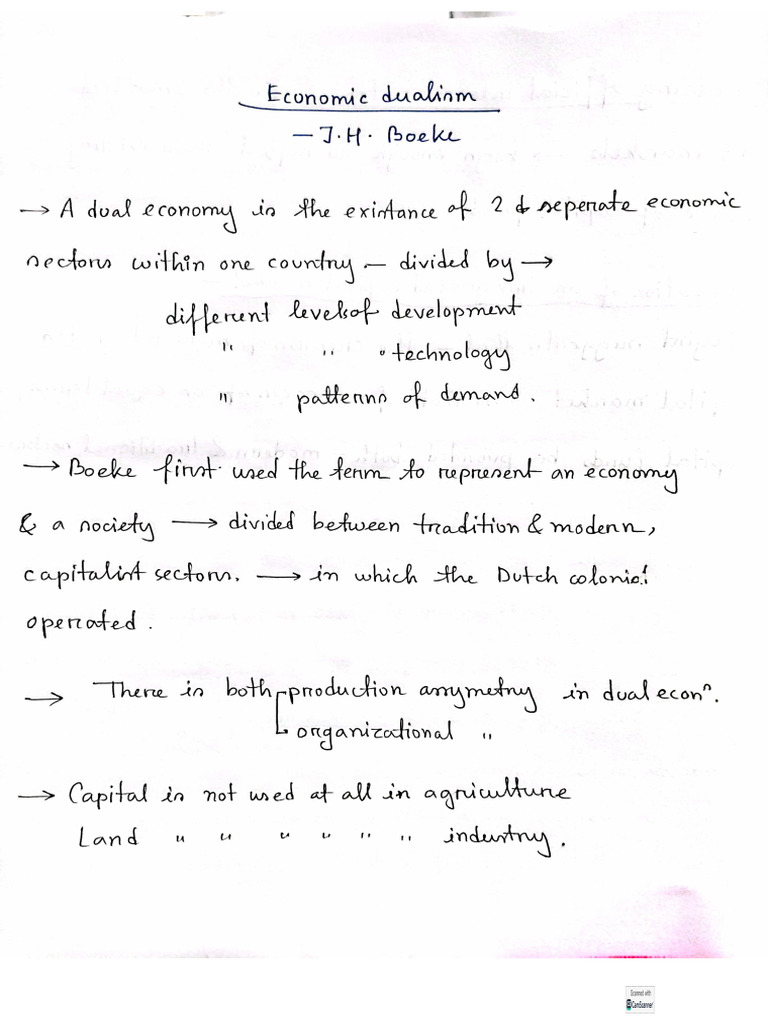 Economic dualism
— J.H. Boeke
→ A dual economy is the existance of 2 seperate economic
sectors within one country — divided by →
different levels of development
" " technology
" patterns of demand.
→ Boeke first used the term to represent an economy
& a society → divided between tradition & modern,
capitalist sectors. → in which the Dutch colonial
operated.
→ There is both production assymetry in dual econⁿ.
organizational "
→ Capital is not used at all in agriculture
Land " " " " " " industry.
Scanned with
CamScanner